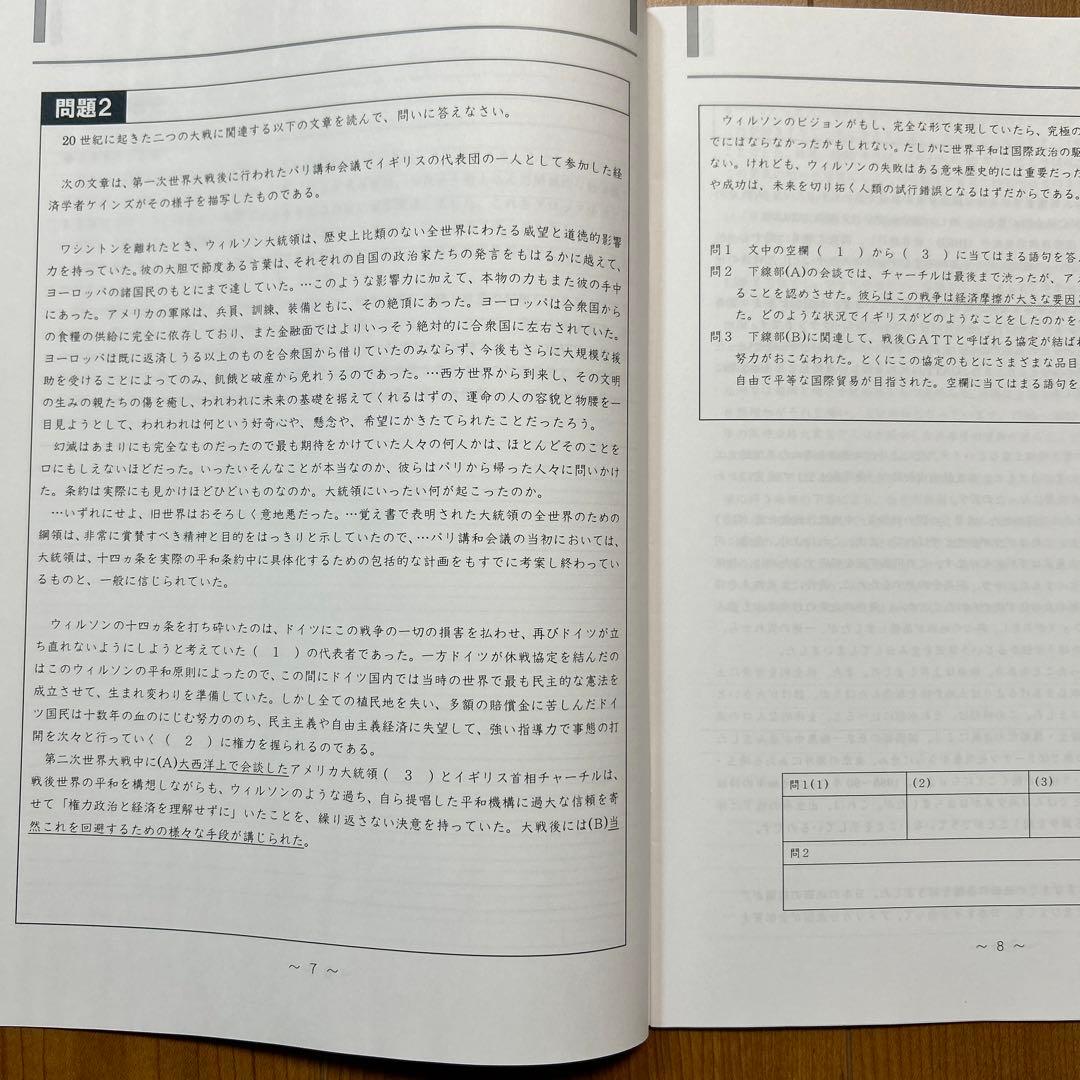 問題2
20世紀に起きた二つの大戦に関連する以下の文章を読んで、問いに答えなさい。
次の文章は、第一次世界大戦後に行われたパリ講和会議でイギリスの代表団の一人として参加した経
済学者ケインズがその様子を描写したものである。
ワシントンを離れたとき、ウィルソン大統領は、歴史上比類のない全世界にわたる威望と道徳的影響
力を持っていた。彼の大胆で節度ある言葉は、それぞれの自国の政治家たちの発言をもはるかに越えて、
ヨーロッパの諸国民のもとにまで達していた。…このような影響力に加えて、本物の力もまた彼の手中
にあった。アメリカの軍隊は、兵員、訓練、装備ともに、その絶頂にあった。ヨーロッパは合衆国から
の食糧の供給に完全に依存しており、また金融面ではよりいっそう絶対的に合衆国に左右されていた。
ヨーロッパは既に返済しうる以上のものを合衆国から借りていたのみならず、今後もさらに大規模な援
助を受けることによってのみ、飢餓と破産から免れうるのであった。…西方世界から到来し、その文明
の生みの親たちの傷を癒し、われわれに未来の基礎を据えてくれるはずの、運命の人の容貌と物腰を一
目見ようとして、われわれは何という好奇心や、懸念や、希望にかきたてられたことだったろう。
幻滅はあまりにも完全なものだったので最も期待をかけていた人々の何人かは、ほとんどそのことを
口にもしえないほどだった。いったいそんなことが本当なのか、彼らはパリから帰った人々に問いかけ
た。条約は実際にも見かけほどひどいものなのか。大統領にいったい何が起こったのか。
…いずれにせよ、旧世界はおそろしく意地悪だった。…覚え書で表明された大統領の全世界のための
綱領は、非常に賞賛すべき精神と目的をはっきりと示していたので、…パリ講和会議の当初においては、
大統領は、十四ヵ条を実際の平和条約中に具体化するための包括的な計画をもすでに考案し終わってい
るものと、一般に信じられていた。
ウィルソンの十四ヵ条を打ち砕いたのは、ドイツにこの戦争の一切の損害を払わせ、再びドイツが立
ち直れないようにしようと考えていた( 1 )の代表者であった。一方ドイツが休戦協定を結んだの
はこのウィルソンの平和原則によったので、この間にドイツ国内では当時の世界で最も民主的な憲法を
成立させて、生まれ変わりを準備していた。しかし全ての植民地を失い、多額の賠償金に苦しんだドイ
ツ国民は十数年の血のにじむ努力ののち、民主主義や自由主義経済に失望して、強い指導力で事態の打
開を次々と行っていく( 2 )に権力を握られるのである。
第二次世界大戦中に(A)大西洋上で会談したアメリカ大統領( 3 )とイギリス首相チャーチルは、
戦後世界の平和を構想しながらも、ウィルソンのような過ち、自ら提唱した平和機構に過大な信頼を寄
せて「権力政治と経済を理解せずに」いたことを、繰り返さない決意を持っていた。大戦後には(B)当
然これを回避するための様々な手段が講じられた。
～ 7 ～
ウィルソンのビジョンがもし、完全な形で実現していたら、究極の
でにはならなかったかもしれない。たしかに世界平和は国際政治の駆
ない。けれども、ウィルソンの失敗はある意味歴史的には重要だった
や成功は、未来を切り拓く人類の試行錯誤となるはずだからである。
問1 文中の空欄( 1 )から( 3 )に当てはまる語句を答
問2 下線部(A)の会談では、チャーチルは最後まで渋ったが、アメ
ることを認めさせた。彼らはこの戦争は経済摩擦が大きな要因と
た。どのような状況でイギリスがどのようなことをしたのかを
問3 下線部(B)に関連して、戦後GATTと呼ばれる協定が結ばれ
努力がおこなわれた。とくにこの協定のもとにさまざまな品目
自由で平等な国際貿易が目指された。空欄に当てはまる語句を
問1(1)
(2)
(3)
問2
～ 8 ～